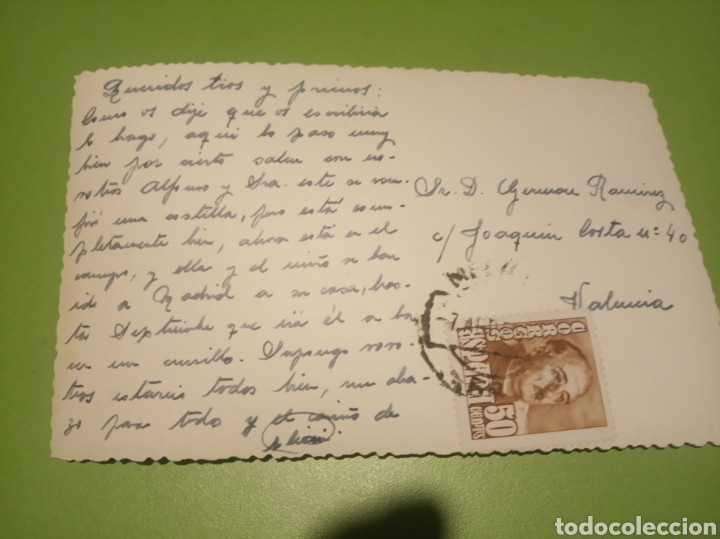 Queridos tios y primos:
Como os dije que os escribiria
lo hago, aqui lo paso muy
bien por cierto salen con no-
sotros Alfonso y Sra. este se rom-
pió una costilla, pero está com-
pletamente bien, ahora está en el
campo, y ella y el niño se han
ido a Madrid a su casa, has-
ta Septiembre que irá él a ha-
cer un cursillo. Supongo voso-
tros estareis todos bien, un abra-
zo para todos y el cariño de
Sr. D. Germán Ramirez
c/ Joaquin Costa nº 40
Valencia
CORREOS
ESPAÑA
50
CENTS
todocoleccion